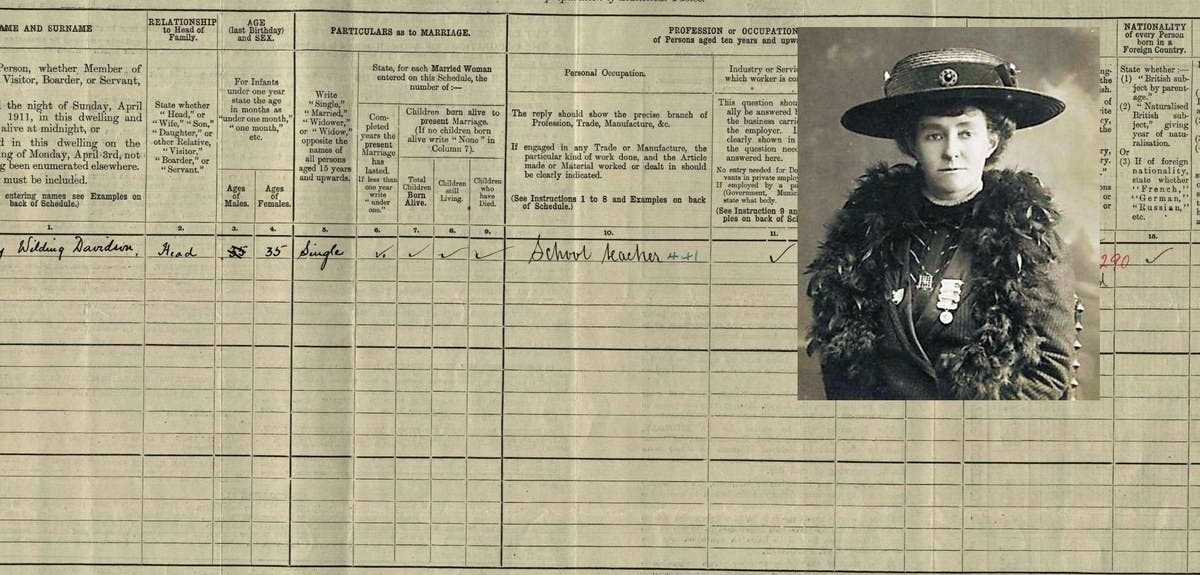 AME AND SURNAME
RELATIONSHIP
to Head of
Family.
AGE
(last Birthday)
and SEX.
PARTICULARS as to MARRIAGE.
PROFESSION or OCCUPATION
of Persons aged ten years and upw
NATIONALITY
of every Person
born in a
Foreign Country.
Person, whether Member of
Visitor, Boarder, or Servant,
the night of Sunday, April
1911, in this dwelling and
alive at midnight, or
d in this dwelling on the
ng of Monday, April 3rd, not
g been enumerated elsewhere.
must be included.
entering names see Examples on
back of Schedule.)
State whether
"Head," or
"Wife," "Son,"
"Daughter," or
other Relative,
"Visitor,"
"Boarder," or
"Servant."
For Infants
under one year
state the age
in months as
"under one month,"
"one month,"
etc.
Ages
of
Males.
Ages
of
Females.
Write
"Single,"
"Married,"
"Widower,"
or "Widow,"
opposite the
names of
all persons
aged 15 years
and upwards.
State, for each Married Woman
entered on this Schedule, the
number of :—
Com-
pleted
years the
present
Marriage
has
lasted.
If less than
one year
write
"under
one."
Children born alive to
present Marriage.
(If no children born
alive write "None" in
Column 7).
Total
Children
Born
Alive.
Children
still
Living.
Children
who
have
Died.
Personal Occupation.
The reply should show the precise branch of
Profession, Trade, Manufacture, &c.
If engaged in any Trade or Manufacture, the
particular kind of work done, and the Article
made or Material worked or dealt in should
be clearly indicated.
(See Instructions 1 to 8 and Examples on back
of Schedule.)
Industry or Servic
which worker is co
This question shou
ally be answered b
the business carri
the employer. I
clearly shown in
the question nee
answered here.
No entry needed for Do
vants in private employ
If employed by a pu
(Government, Munic
state what body.
(See Instruction 9 an
ples on back of Sc
State whether :—
(1) "British sub-
ject by parent-
age."
(2) "Naturalised
British sub-
ject," giving
year of natu-
ralisation.
Or
(3) If of foreign
nationality,
state whether
"French,"
"German,"
"Russian,"
etc.
1. 2. 3. 4. 5. 6. 7. 8. 9. 10. 11. 15.
y Wilding Davidson, Head 35 35 Single ✓ ✓ ✓ ✓ School teacher 441 ✓ 290 ✓